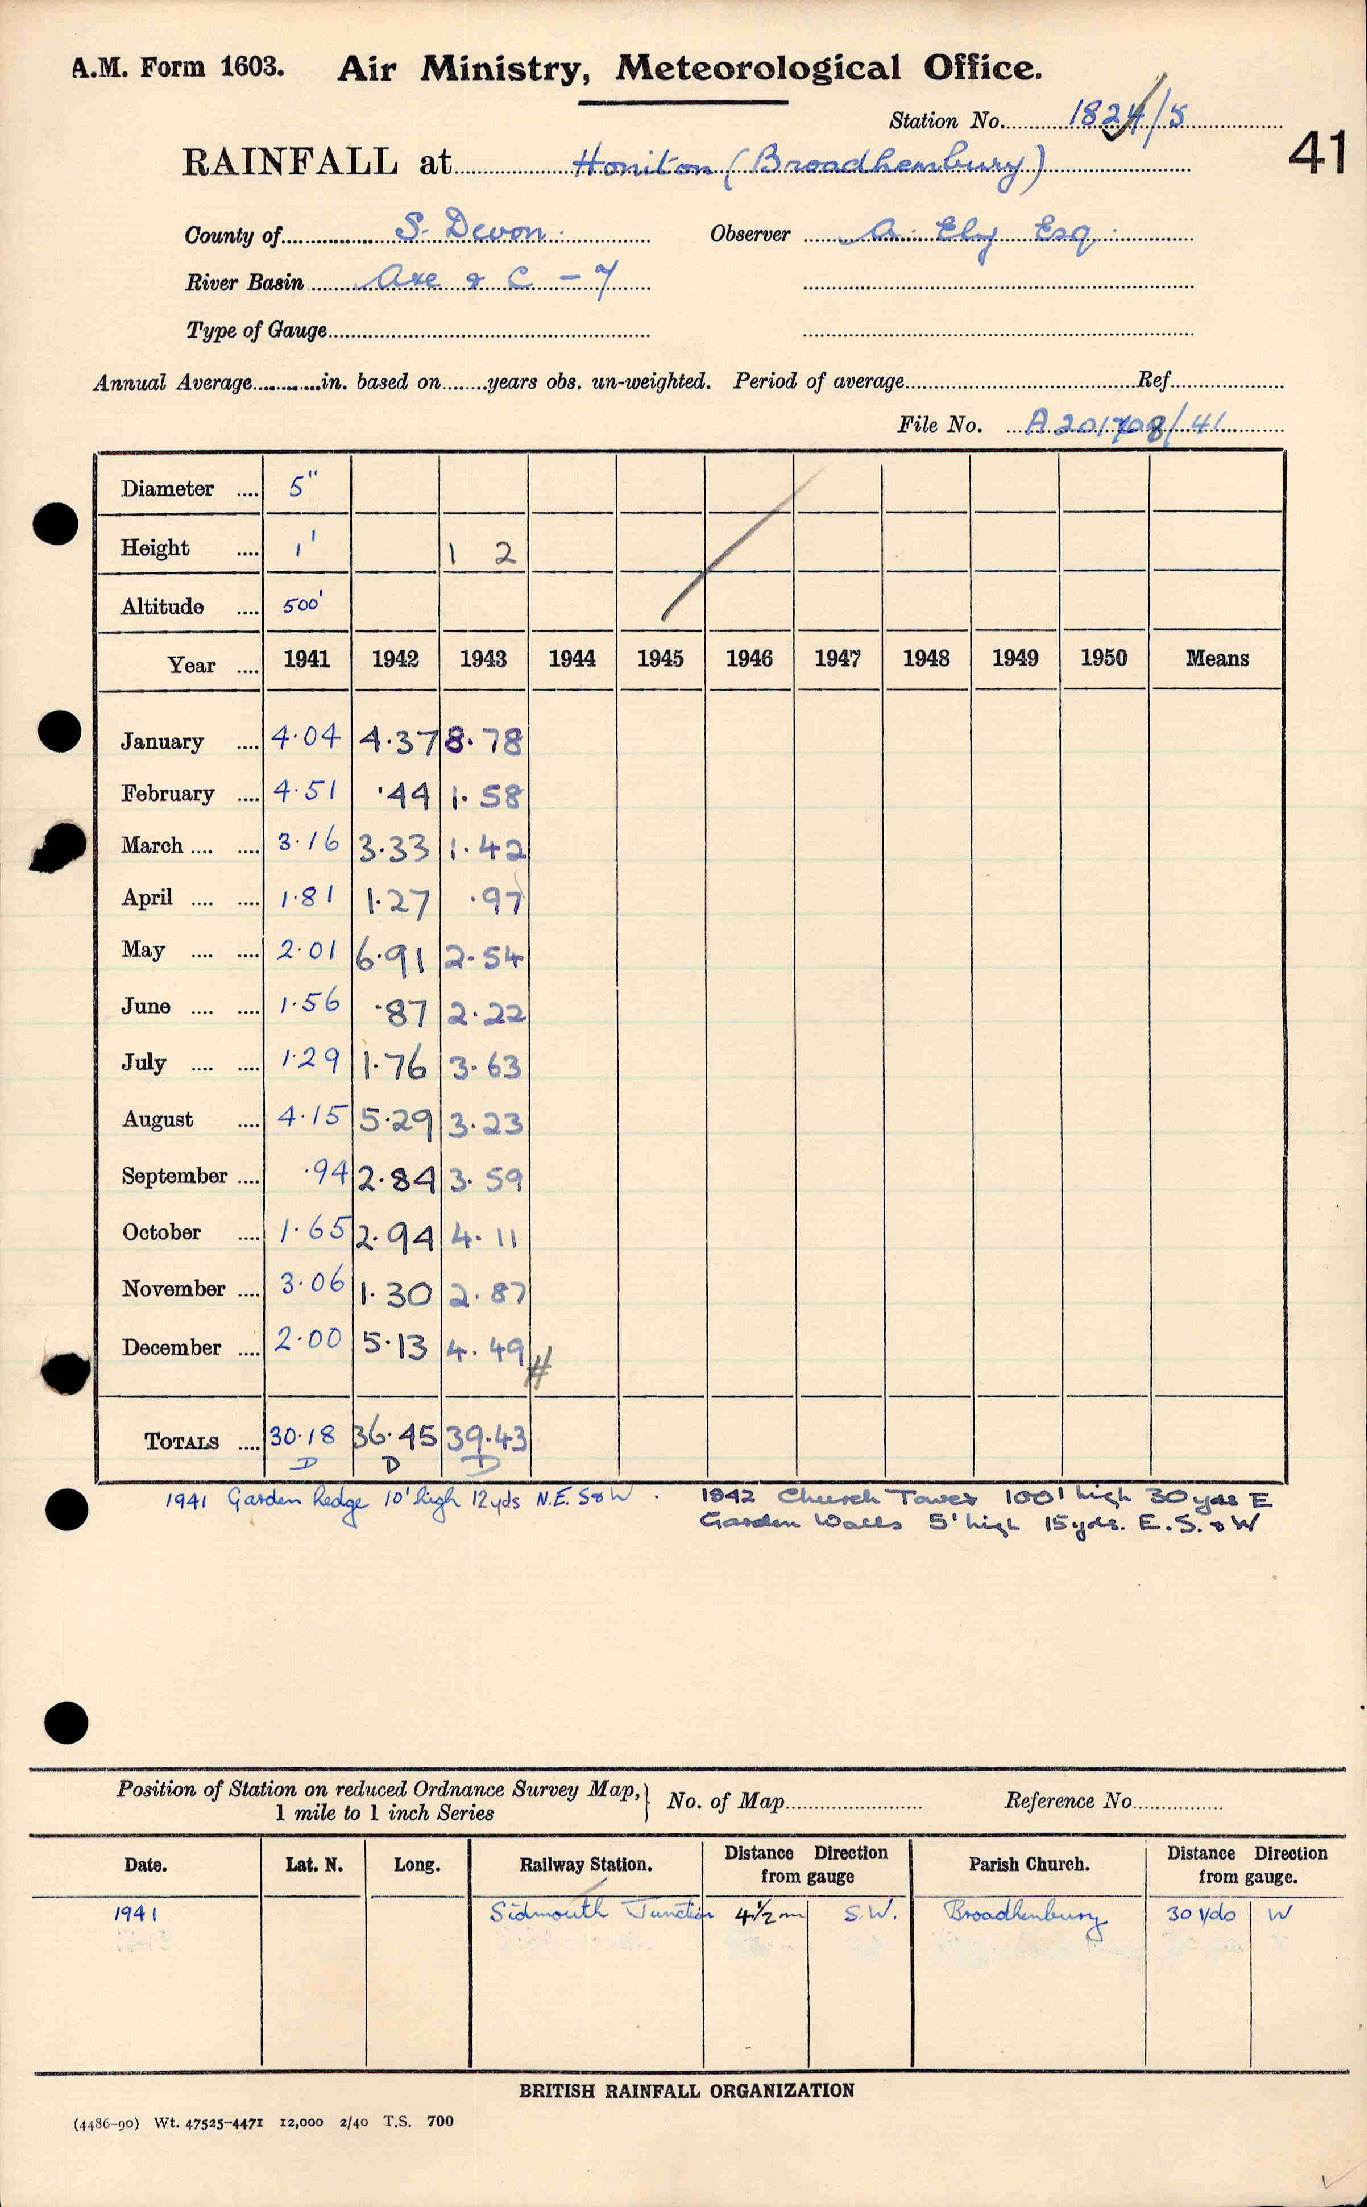 A.M. Form 1603. Air Ministry, Meteorological Office.
Station No. 1824/5
41
RAINFALL at Honiton (Broadhembury)
County of S. Devon. Observer A. Ely Esq.
River Basin Axe & C - 7
Type of Gauge
Annual Average in. based on years obs. un-weighted. Period of average Ref
File No. A201708/41
Diameter .... 5"
Height .... 1' 1 2
Altitude .... 500'
Year .... 1941 1942 1943 1944 1945 1946 1947 1948 1949 1950 Means
January .... 4.04 4.37 8.78
February .... 4.51 .44 1.58
March .... .... 3.16 3.33 1.42
April .... .... 1.81 1.27 .97
May .... .... 2.01 6.91 2.54
June .... .... 1.56 .87 2.22
July .... .... 1.29 1.76 3.63
August .... 4.15 5.29 3.23
September .... .94 2.84 3.59
October .... 1.65 2.94 4.11
November .... 3.06 1.30 2.87
December .... 2.00 5.13 4.49 #
TOTALS .... 30.18 36.45 39.43
D D D
1941 Garden hedge 10' high 12yds N.E. S & W. 1942 Church Tower 100' high 30 yds E
Garden Walls 5' high 15yds. E. S. & W
Position of Station on reduced Ordnance Survey Map, } No. of Map Reference No
1 mile to 1 inch Series
Date. Lat. N. Long. Railway Station. Distance Direction from gauge Parish Church. Distance Direction from gauge.
1941 Sidmouth Junction 4½ m S.W. Broadhembury 30 yds W
BRITISH RAINFALL ORGANIZATION
(4486-90) Wt. 47525-4471 12,000 2/40 T.S. 700